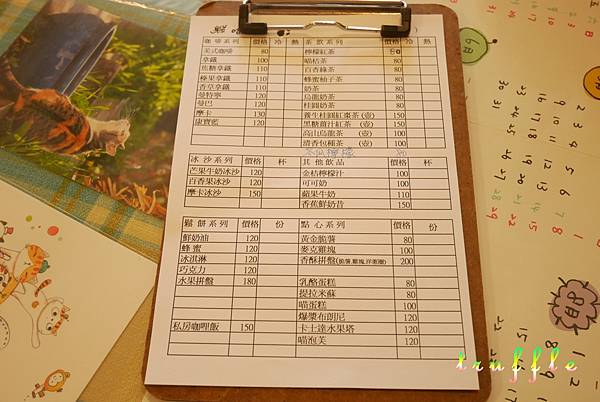 咖啡系列 價格 冷 熱 茶飲系列 價格 冷 熱
美式咖啡 80 檸檬紅茶 80
拿鐵 100 喵桔茶 80
焦糖拿鐵 110 百香綠茶 80
榛果拿鐵 110 蜂蜜柚子茶 80
香草拿鐵 110 奶茶 80
曼特寧 120 烏龍奶茶 80
曼巴 120 桂圓奶茶 80
摩卡 130 養生桂圓紅棗茶 (壺) 150
康寶藍 120 黑糖薑汁紅茶 (壺) 150
高山烏龍茶 (壺) 100
清香包種茶 (壺) 100
冬瓜檸檬
冰沙系列 價格 杯 其他飲品 價格 杯
芒果牛奶冰沙 120 金桔檸檬汁 100
百香果冰沙 120 可可奶 100
摩卡冰沙 150 蘋果牛奶 110
香蕉鮮奶昔 150
鬆餅系列 價格 份 點心系列 價格 份
鮮奶油 120 黃金脆薯 80
蜂蜜 120 麥克雞塊 80
冰淇淋 120 香酥拼盤(脆薯.雞塊.洋蔥圈) 200
巧克力 120
水果拼盤 180 乳酪蛋糕 80
提拉米蘇 80
喵蛋糕 100
爆漿布朗尼 120
私房咖哩飯 150 卡士達水果塔 120
喵泡芙 120
6月
8月
truffle